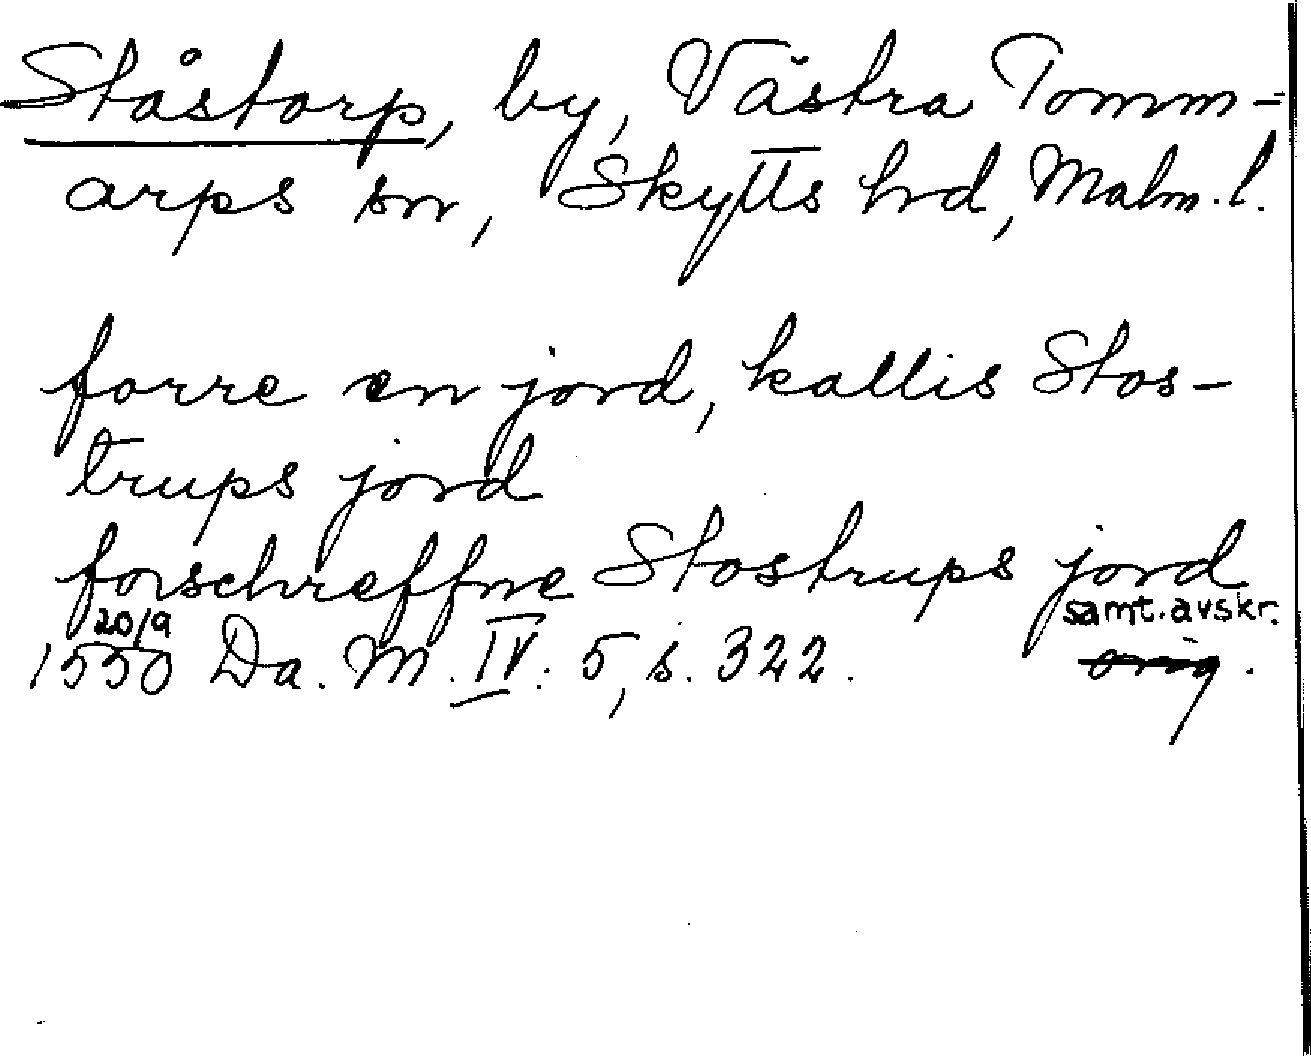 Ståstorp, by, Västra Tomm-
arps sn, Skytts hd, Malm. l.
forre en jord, kallis Stos-
trups jord
forschreffne Stostrups jord
20/9 samt. avskr.
1550 Da. M. IV: 5, s. 322. orig.